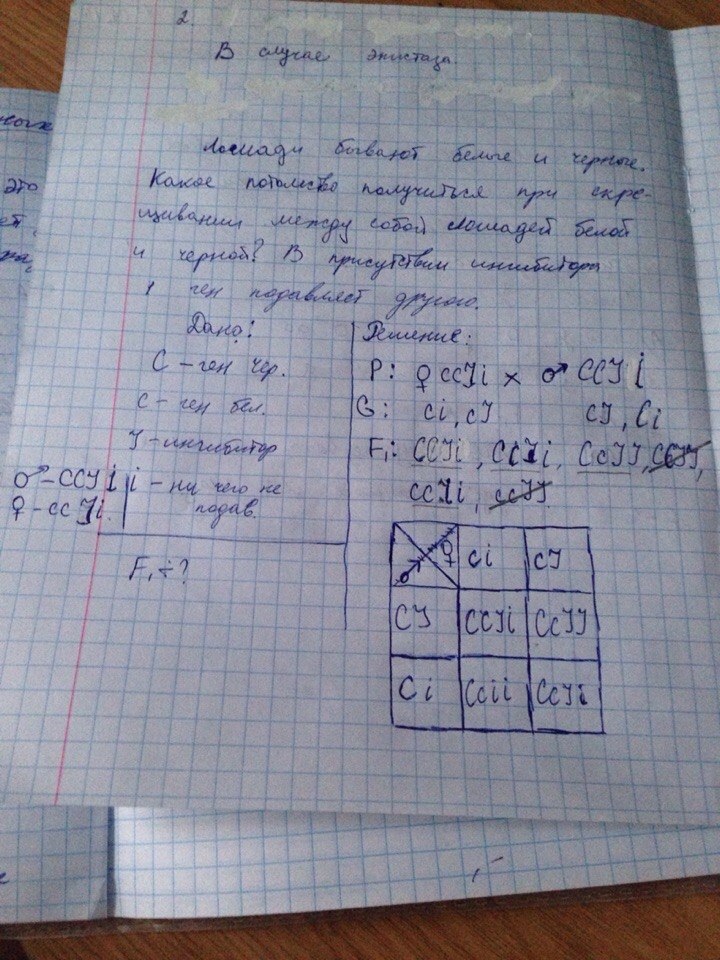 2.
В случае эпистаза
Лошади бывают белые и черные.
Какое потомство получиться при скре-
щивании между собой лошадей белой
и черной? В присутствии ингибитора
1 ген подавляет другого.
Дано:
C - ген чер.
c - ген бел.
J - ингибитор
i - ни чего не
подав.
♂ - CCJi
♀ - ccJi
F₁ - ?
Решение:
P: ♀ ccJi × ♂ CCJi
G: ci, cJ CJ, Ci
F₁: CCJi, CcJi, CcJJ, CCJJ,
ccJi, ccJJ
♂ ♀ ci cJ
CJ CCJi CcJJ
Ci Ccii CcJi